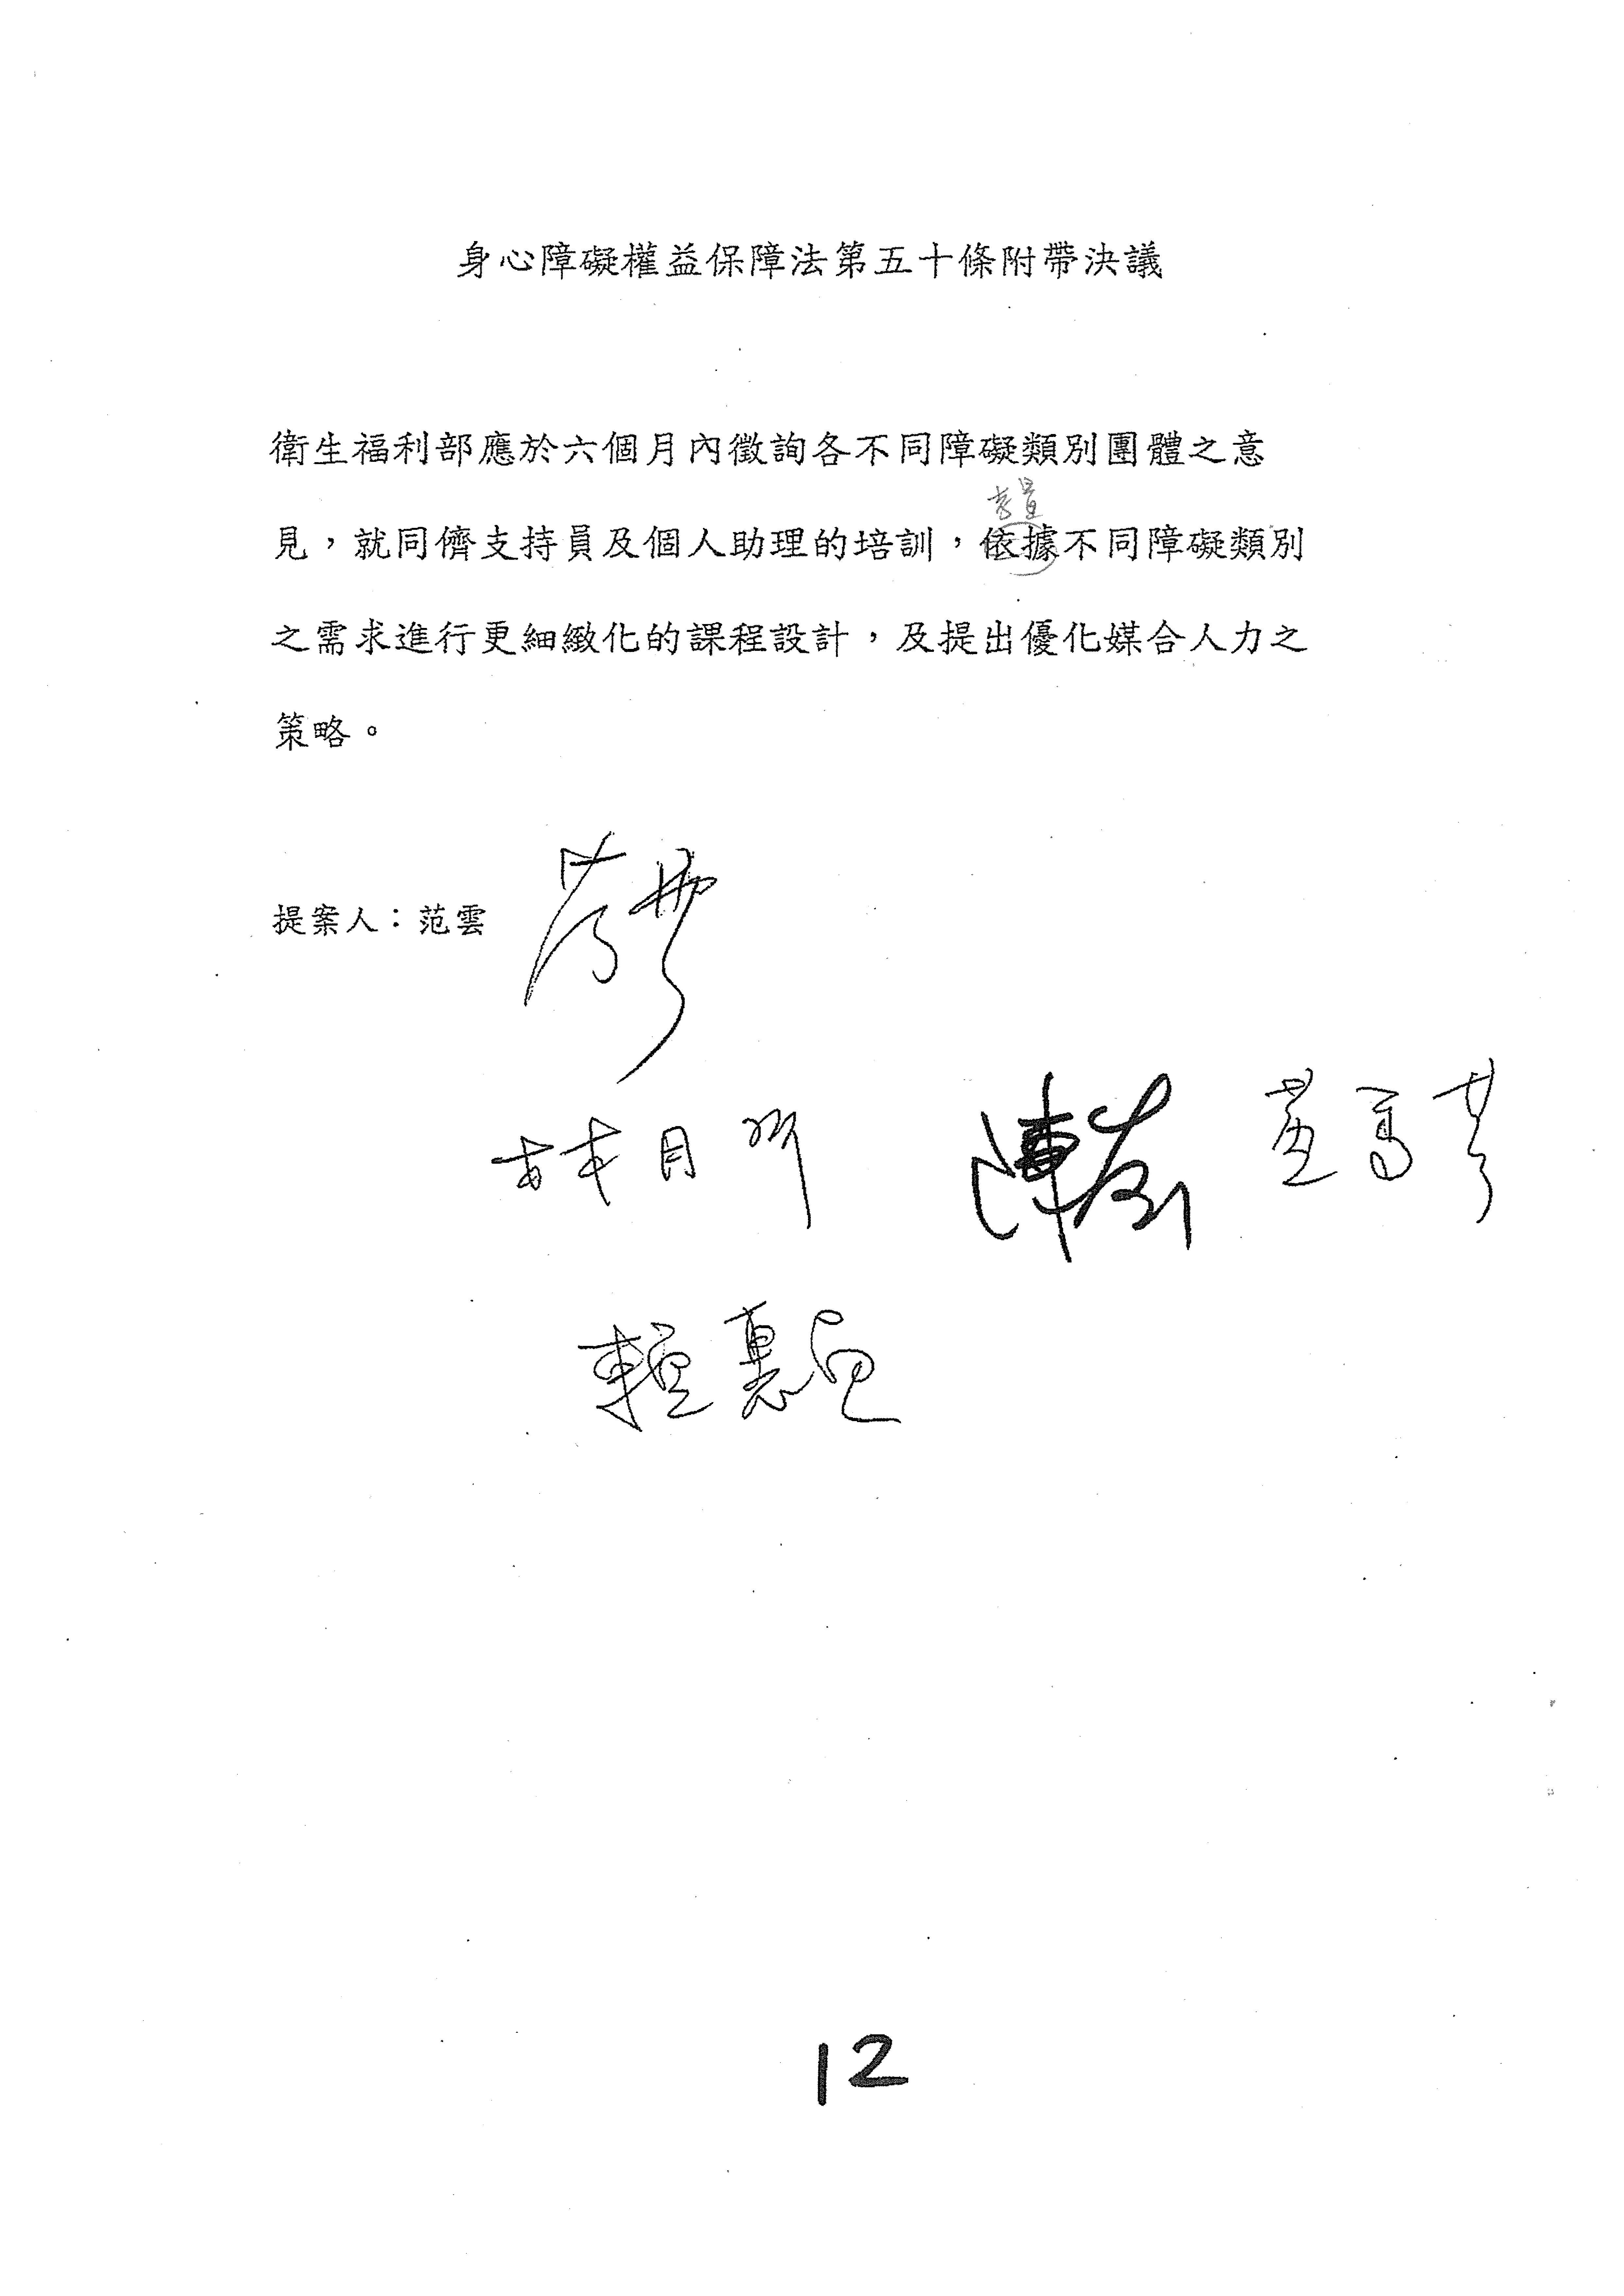 身心障礙權益保障法第五十條附帶決議
衛生福利部應於六個月內徵詢各不同障礙類別團體之意
考量
見，就同儕支持員及個人助理的培訓，依據不同障礙類別
之需求進行更細緻化的課程設計，及提出優化媒合人力之
策略。
提案人：范雲
林月琴
12